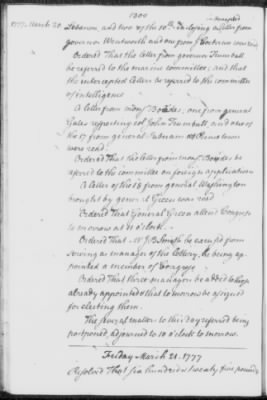 1300
intercepted
1777. March 20. Lebanon, and two of the 10th inclosing a letter from
governor Wentworth and one from J Cochran were read
Ordered That the letter from governor Trumbull
be referred to the marine committee, and that
the intercepted letters be referred to the committee
of intelligence
A letter from monsr B des, one from general
Gates respecting col John Trumbull, and two of
the 17 from general at town
were read
Ordered That the letter from monsr B des be
referred to the committee on foreign application
A letter of the 18 from general Washington
brought by general Green was read
Ordered That General Green attend Congress
to morrow at 11 o'clock.
Ordered That Mr J B Smith be excused from
serving as manager of the lottery, he being ap-
pointed a member of Congress
Ordered That three managers be added to those
already appointed & that to morrow be assigned
for electing them.
The several matters to this day referred being
postponed, adjourned to 10 o'clock to morrow.
Friday March 21. 1777
Resolved That six hundred & twenty five pounds